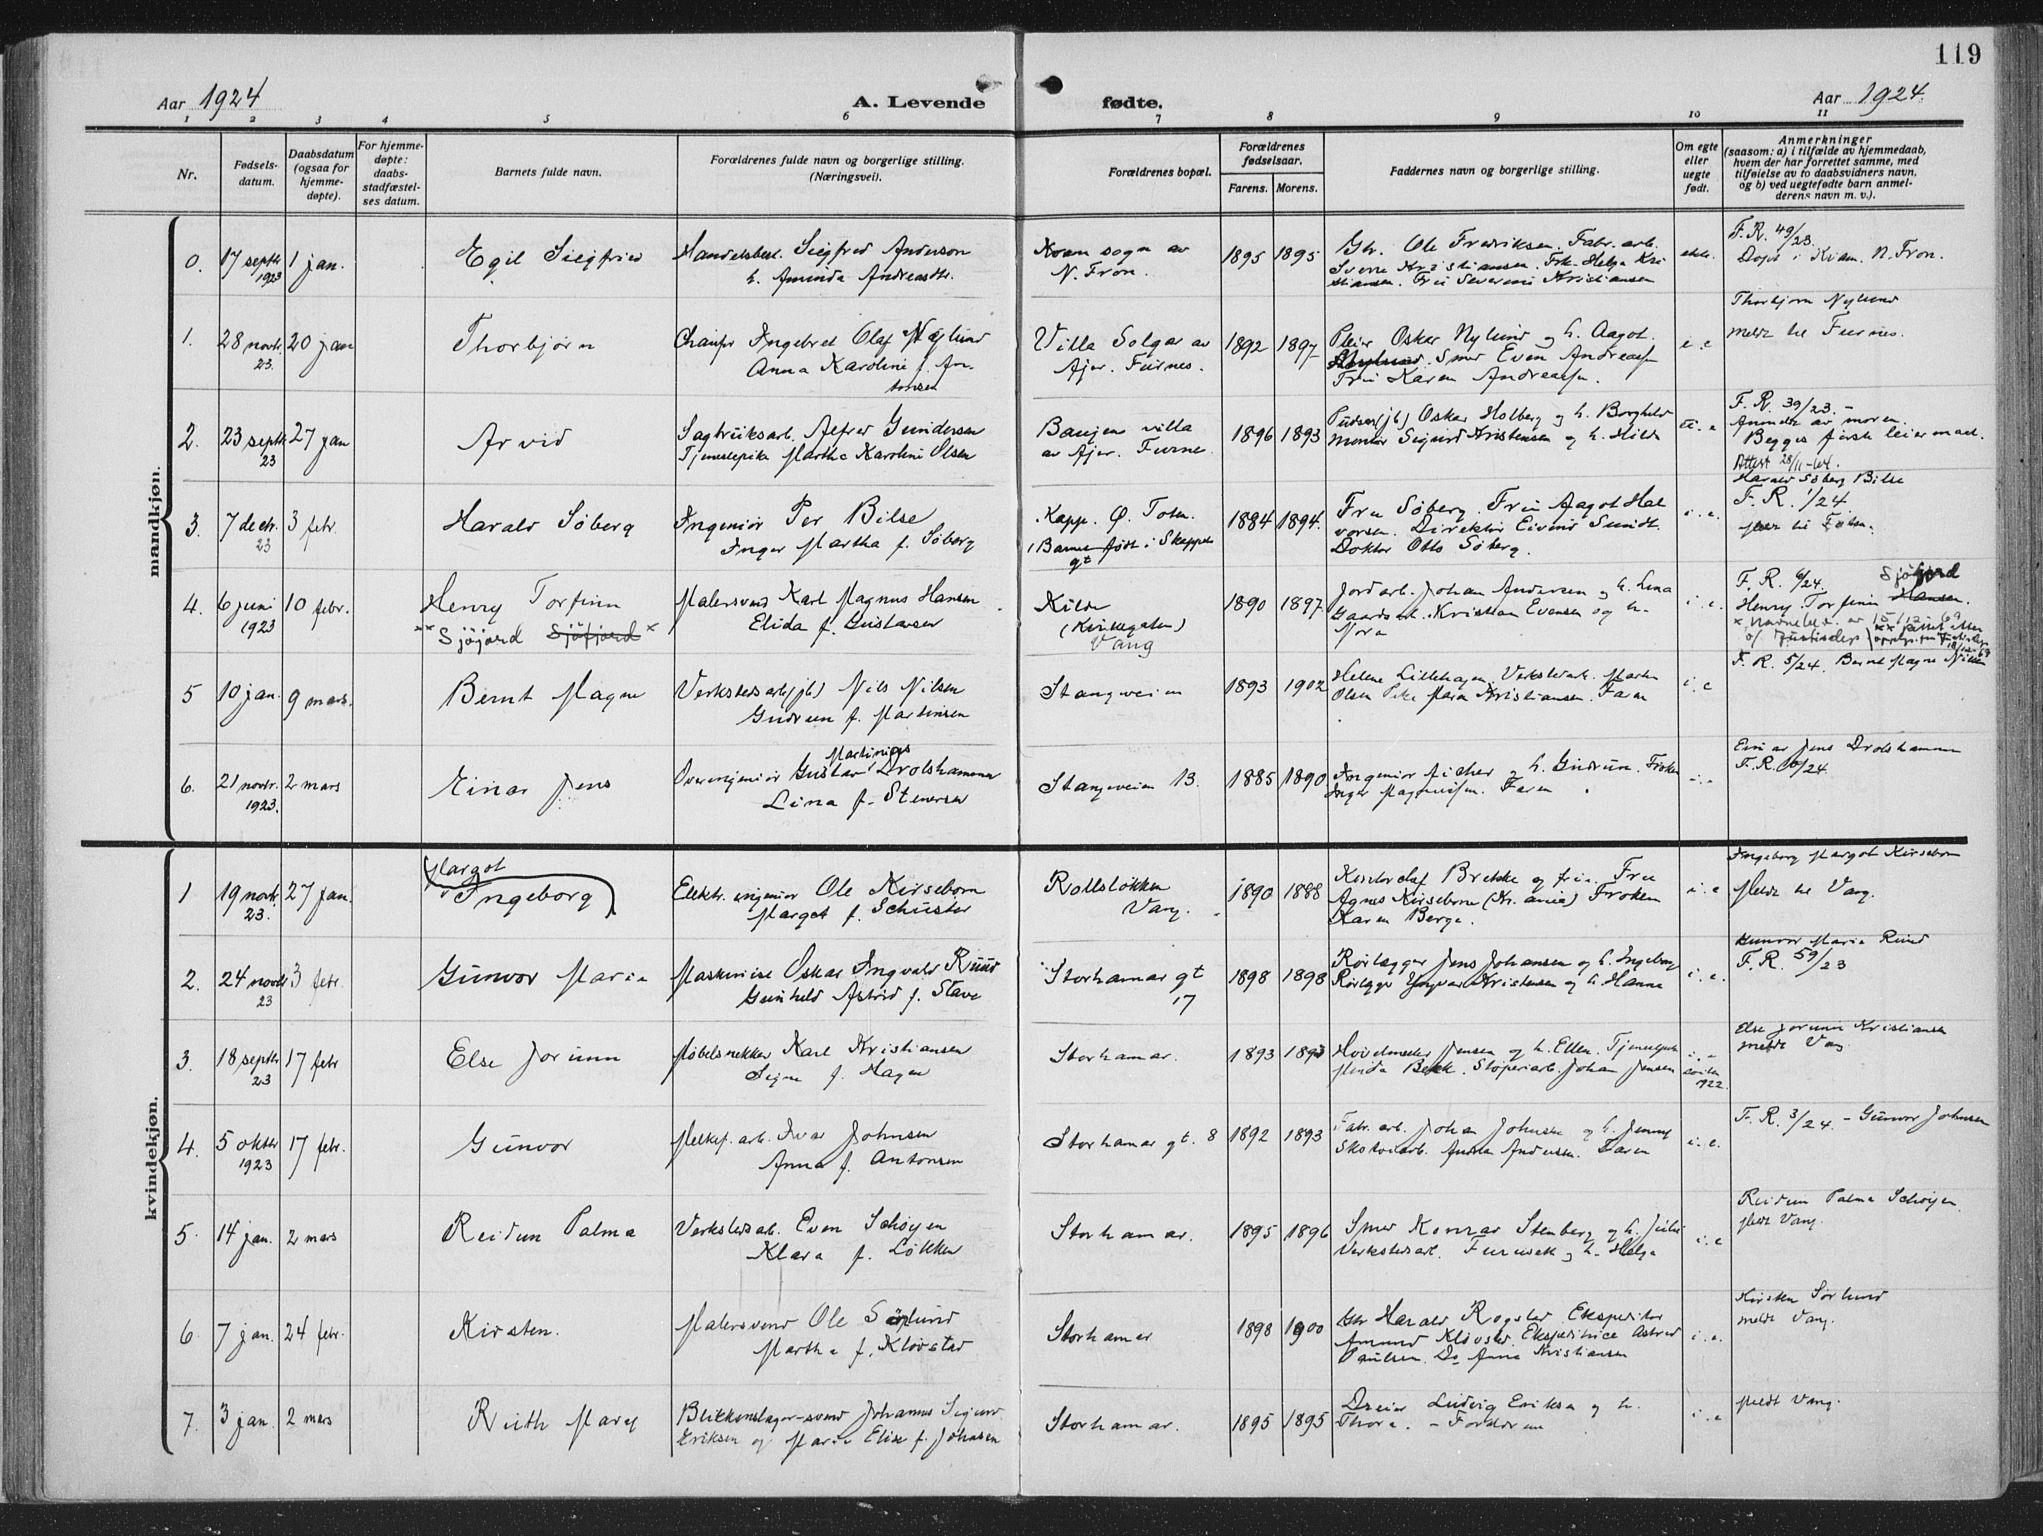 119
Aar 1924
A. Levende fødte.
Aar 1924.
1 2 3 4 5 6 7 8 9 10 11
Nr.
Fødsels-
datum.
Daabsdatum
(ogsaa for
hjemme-
døpte).
For hjemme-
døpte:
daabs-
stadfæstel-
ses datum.
Barnets fulde navn.
Forældrenes fulde navn og borgerlige stilling.
(Næringsvei).
Forældrenes bopæl.
Forældrenes
fødselsaar.
Farens. Morens.
Faddernes navn og borgerlige stilling.
Om egte
eller
uegte
født.
Anmerkninger
(saasom: a) i tilfælde av hjemmedaab,
hvem der har forrettet samme, med
tilføielse av to daabsvidners navn,
og b) ved uegtefødte barn anmel-
derens navn m. v.).
mandkjøn.
0. 17 septbr 1923 1 jan. Egil Siegfried
Handelsbest. Siegfred Anderson
h. Aminda
Kvam sogn av
N. Fron.
1895 1895
Gbr. Ole Fredriksen. Fabr. arb.
Sverre Kristiansen. Frk. Helga Kri
stiansen. Fru Severine Kristiansen
F. R. 49/23.
Døpt i Kvam. N. Fron.
1. 28 novbr. 23. 20 jan Thorbjørn
Ingebret Olaf Nylund
Anna Karoline f. An-
tonsen
Villa Solgar av
Ajer. Furnes.
1892 1897
Pleier Oskar Nylund og h. Aagot
Smed Even Andreassen
Fru Karen Andreassen.
i. e
Thorbjørn Nylund
meldt til Furnes.
2. 23 septbr 23 27 jan Arvid
Sagbruksarb. Alfred Gundersen
Tjenestepike Marthe Karoline Olsen
villa
av Ajer. Furne
1896 1893
Pudser (jb) Oskar Holberg og h. Borghild
Montør Sigurd Kristensen og h. Hilda
F. R. 39/23. -
Anmeldt av moren.
Begges første leiermaal.
Attest 28/11-64.
3. 7 decbr. 23 3 febr. Harald Søberg
Ingeniør Per Bilse
Inger Martha f. Søberg
Kapp. Ø. Toten.
(Barnet født i Skappels
gt
1884 1894.
Fru Søberg. Fru Aagot Hal
vorsen. Direktør Eivind Sundt.
Doktor Otto Søberg.
i. e.
Harald Søberg Bilse
F. R. 1/24.
4. 6 juni 1923 10 febr. Henry Torfinn
xx Sjøjord Sjøfjord x
Malersvend Karl Magnus Hansen
Elida f. Gustavsen
Kilde
(Kirkegaten)
Vang
1890 1897
Jordarb. Johan Andersen og h. Lina
Gaardsarb. Kristian Evensen og h.
Nora
i. e.
F. R. 6/24. Sjøjord
Henry Torfinn Hansen.
x Navnebev. av 15/12-69
5 10 jan. 9 mars. Bernt Magne
Verkstedsarb. (jb) Nils Nilsen
Gudrun f. Martinsen
Stangeveien
1893 1902
Helene Lillehagen. Verkstedarb. Martin
Olsen Pike Mara Kristiansen. Faren
i. e
F. R. 5/24. Bernt Magne Nilsen
6. 21 novbr. 1923. 2 mars Einar Jens
Martinius
Overingeniør Gustav Drolshammer
Lina f. Stenersen
Stangeveien 13.
1885 1890
Ingeniør Aicher og h. Gudrun. Frøken
Inger Magnussen. Faren
i. e
Einar Jens Drolshammer
F. R. 10/24.
kvindekjøn.
1 19 novbr. 23. 27 jan. Margot
Ingeborg
Elektr. ingeniør Ole Kirsebom
Margot f. Schuster
Rollsløkken
Vang.
1890 1888
Kontorchef Brekke og frue. Fru
Agnes Kirsebom (Kr.ania) Frøken
Karen Berge.
i. e
Ingeborg Margot Kirsebom
Meldt til Vang.
2. 24 novbr 23 3 febr. Gunvor Marie
Maskinist Oskar Ingvald Ruud
Gunhild Astrid f. Stave
Storhamar gt
17
1898 1898
Rørlægger Jens Johansen og h. Ingeborg
Rørlægger Yngvar Kristensen og h. Hanna
i. e.
Gunvor Marie Ruud
F. R. 59/23
3. 18 septbr. 23 17 febr Else Jorunn
Møbelsnekker Karl Kristiansen
Signe f. Hagen
Storhamar.
1893 1893
Hovedmester Jensen og h. Ellen. Tjenestepike
Minda Bekk. Støperiarb. Johan Jensen
1922.
Else Jorunn Kristiansen
meldt Vang
4. 5 oktbr 1923 17 febr. Gunvor
Melkef. arb. Ivar Johnsen
Anna f. Antonsen
Storhamar gt. 8
1892 1893
Fabr. arb. Johan Johnsen og h. Jenny
Skotøiarb. Andersen. Faren
i. e.
F. R. 3/24. - Gunvor Johnsen
5. 14 jan. 2 mars Reidun Palma
Verkstedsarb. Even Schøyen
Klara f. Løkken
Storhamar.
1895 1896
Smed Konrad Stenberg og h. Julie
Verkstedsarb. Furuseth og h. Helga
i. e
Reidun Palma Schøyen
Meldt Vang.
6. 7 jan. 24 febr. Kirsten.
Malersvend Ole Sørlund
Marthe f. Kløvstad
Storhamar
1898 1900
Gbr Harald Rogstad Ekspeditør
Amund Kløvstad Ekspeditrice Astrid
Paulsen. Do Anna Kristiansen
i. e.
Kirsten Sørlund
meldt Vang.
7. 3 jan. 2 mars Ruth Mary
Blikkenslager-svend Johannes Sigurd
Eriksen og Marie Elise f. Johnsen
Storhamar.
1895 1895
Dreier Ludvig Eriksen og h.
Thora. - Forældrene
i. e
Meldt Vang.